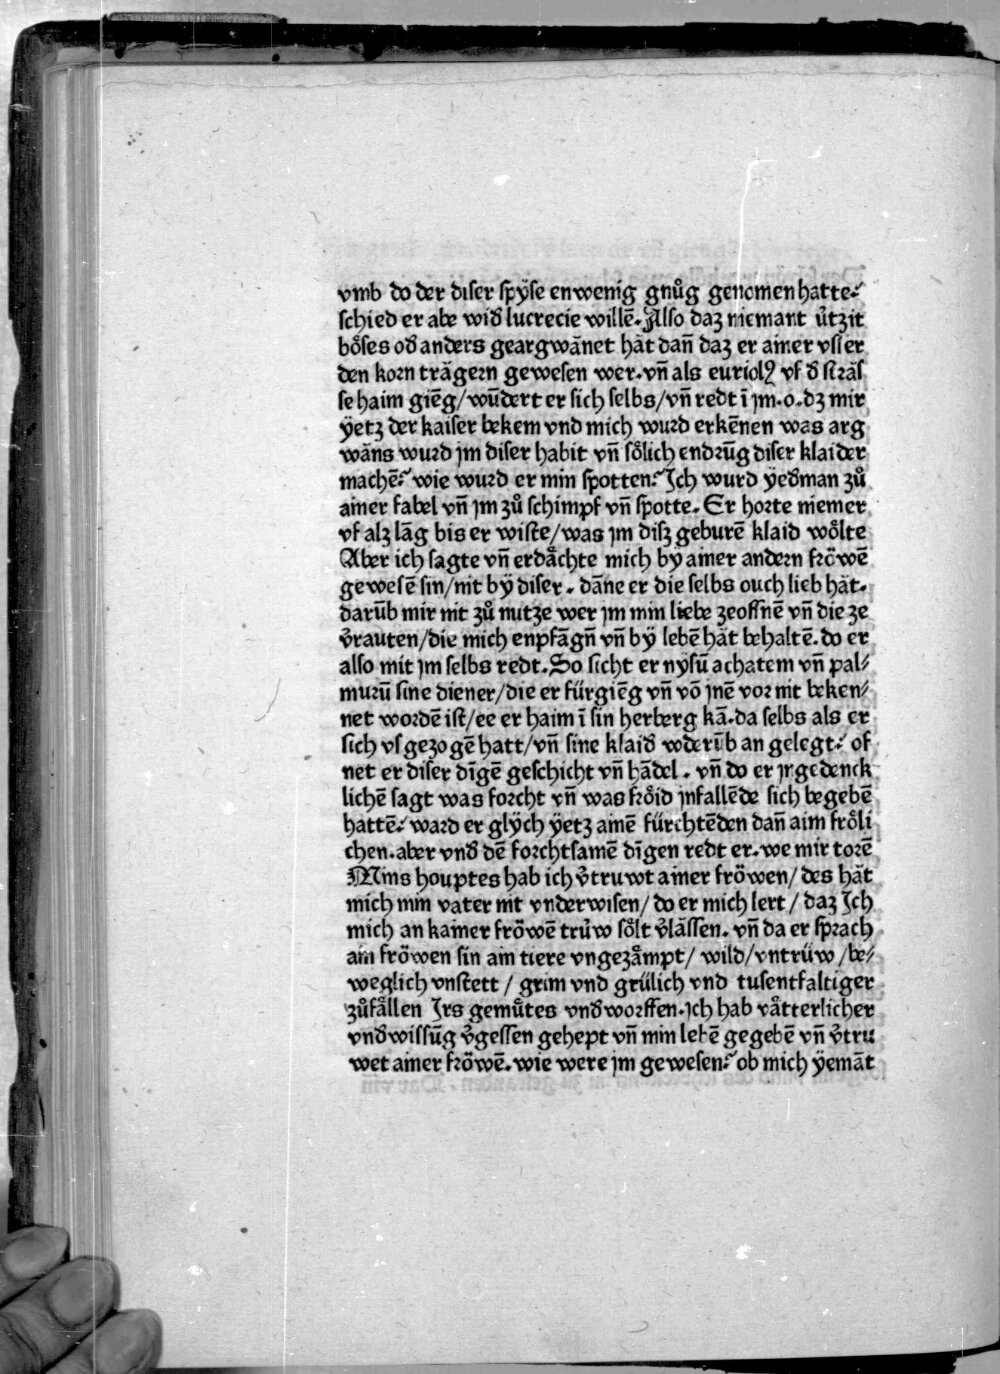 vmb do der diser spÿse enwenig gnuͦg genomen hatte·⸗
schied er abe wid̾ lucrecie willē. Also daz niemant uͤtzit
boͤses od̾ anders geargwānet hāt dañ daz er ainer vsser
den korn trāgern gewesen wer. vñ als euriolꝰ vf d̾ strās
se haim giēg/wūdert er sich selbs/vñ redt ī jm. o. dz mir
ÿetz der kaiser bekem vnd mich wurd erkēnen was arg
wāns wurd jm diser habit vñ soͤlich endrūg diser klaider
machē·⸗ wie wurd er min spotten·⸗ Ich wurd ÿed̾man zuͦ
ainer fabel vñ jm zuͦ schimpf vñ spotte. Er horte niemer
vf alz lāg bis er wiste/was jm disz geburē klaid woͤlte
Aber ich sagte vñ erdaͤchte mich bÿ ainer andern froͤwē
gewesē sin/nit bÿ diser. dāne er die selbs ouch lieb hāt.
darūb mir nit zuͦ nutze wer jm min liebe zeoffnē vñ die ze
v̄rauten/die mich enpfāgñ vñ bÿ lebē hāt behaltē. do er
also mit jm selbs redt. So sicht er nÿsū achatem vñ pal⸗
murū sine diener/die er fürgiēg vñ vō jnē vor nit beken⸗
net wordē ist/ee er haim ī sin herberg kā. da selbs als er
sich vf gezogē hatt/vñ sine klaid̾ wderūb an gelegt·⸗ of
net er diser dīgē geschicht vñ hādel. vñ do er jr gedenck
lichē sagt was forcht vñ was froͤid jnfallēde sich begebē
hattē·⸗ ward er glÿch ÿetz ainē fürchtēden dañ aim froͤli
chen. aber vnd̾ dē forchtsamē dīgen redt er. we mir torē
Mins houptes hab ich v̄truwt ainer froͤwen/ des hāt
mich min vater nit vnderwisen/ do er mich lert / daz Ich
mich an kainer froͤwē truͤw soͤlt v̄lāssen. vñ da er sprach
ain froͤwen sin ain tiere vngezaͤmpt/ wild/vntrüw /be⸗
weglich vnstett / grim vnd grülich vnd tusentfaltiger
zuͦfaͤllen Irs gemuͤtes vnd̾worffen. ich hab vaͤtterlicher
vnd̾wissūg v̄gessen gehept vñ min lebē gegebē vñ v̄tru
wet ainer froͤwē. wie were jm gewesen·⸗ ob mich ÿemāt